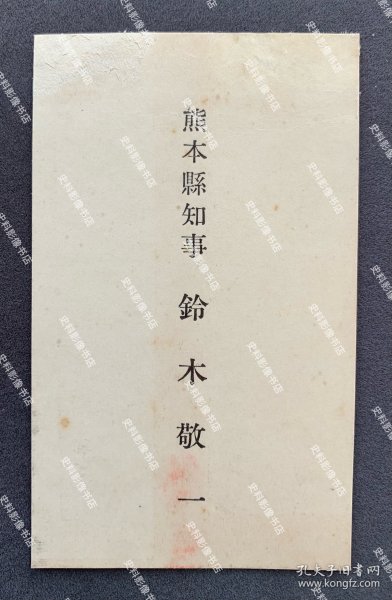 熊本縣知事 鈴木敬一
史料影像书店
孔夫子旧书网
www.kongfz.com